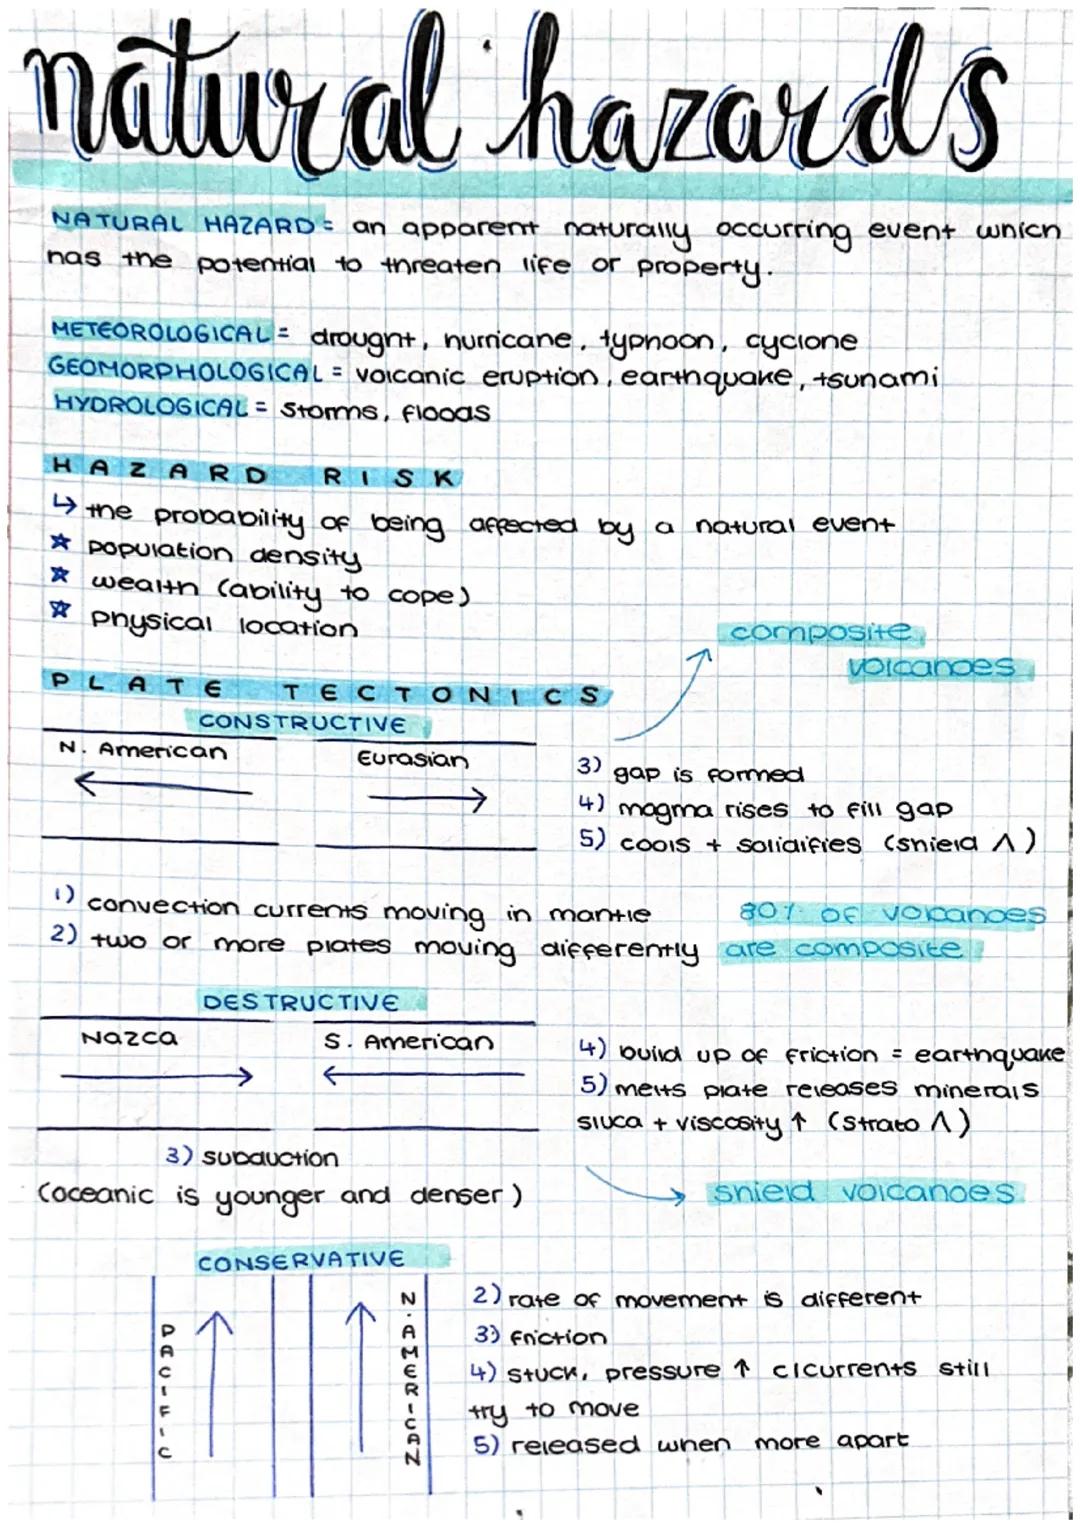 natural hazards
NATURAL HAZARD = an apparent naturally occurring event which
has the potential to threaten life or property.
METEOROLOGICAL = drought, hurricane, typhoon, cyclone
GEOMORPHOLOGICAL = volcanic eruption, earthquake, tsunami
HYDROLOGICAL = storms, floods
HAZARD RISK
↳ the probability of being affected by a natural event
☆ population density
☆ wealth (ability to cope)
☆ physical location
composite
volcanoes
PLATE TECTONICS
CONSTRUCTIVE
N. American
Eurasian
3) gap is formed
4) magma rises to fill gap
5) cools + solidifies (shield Λ)
1) convection currents moving in mantle
2) two or more plates moving differently
80% of volcanoes
are composite
DESTRUCTIVE
Nazca
S. American
4) build up of friction = earthquake
5) melts plate releases minerals
sluca + viscosity ↑ (strato Λ)
3) subduction
(oceanic is younger and denser)
shield volcanoes
CONSERVATIVE
PACIFIC
N. AMERICAN
2) rate of movement is different
3) friction
4) stuck, pressure ↑ c|currents still
try to move
5) released when more apart